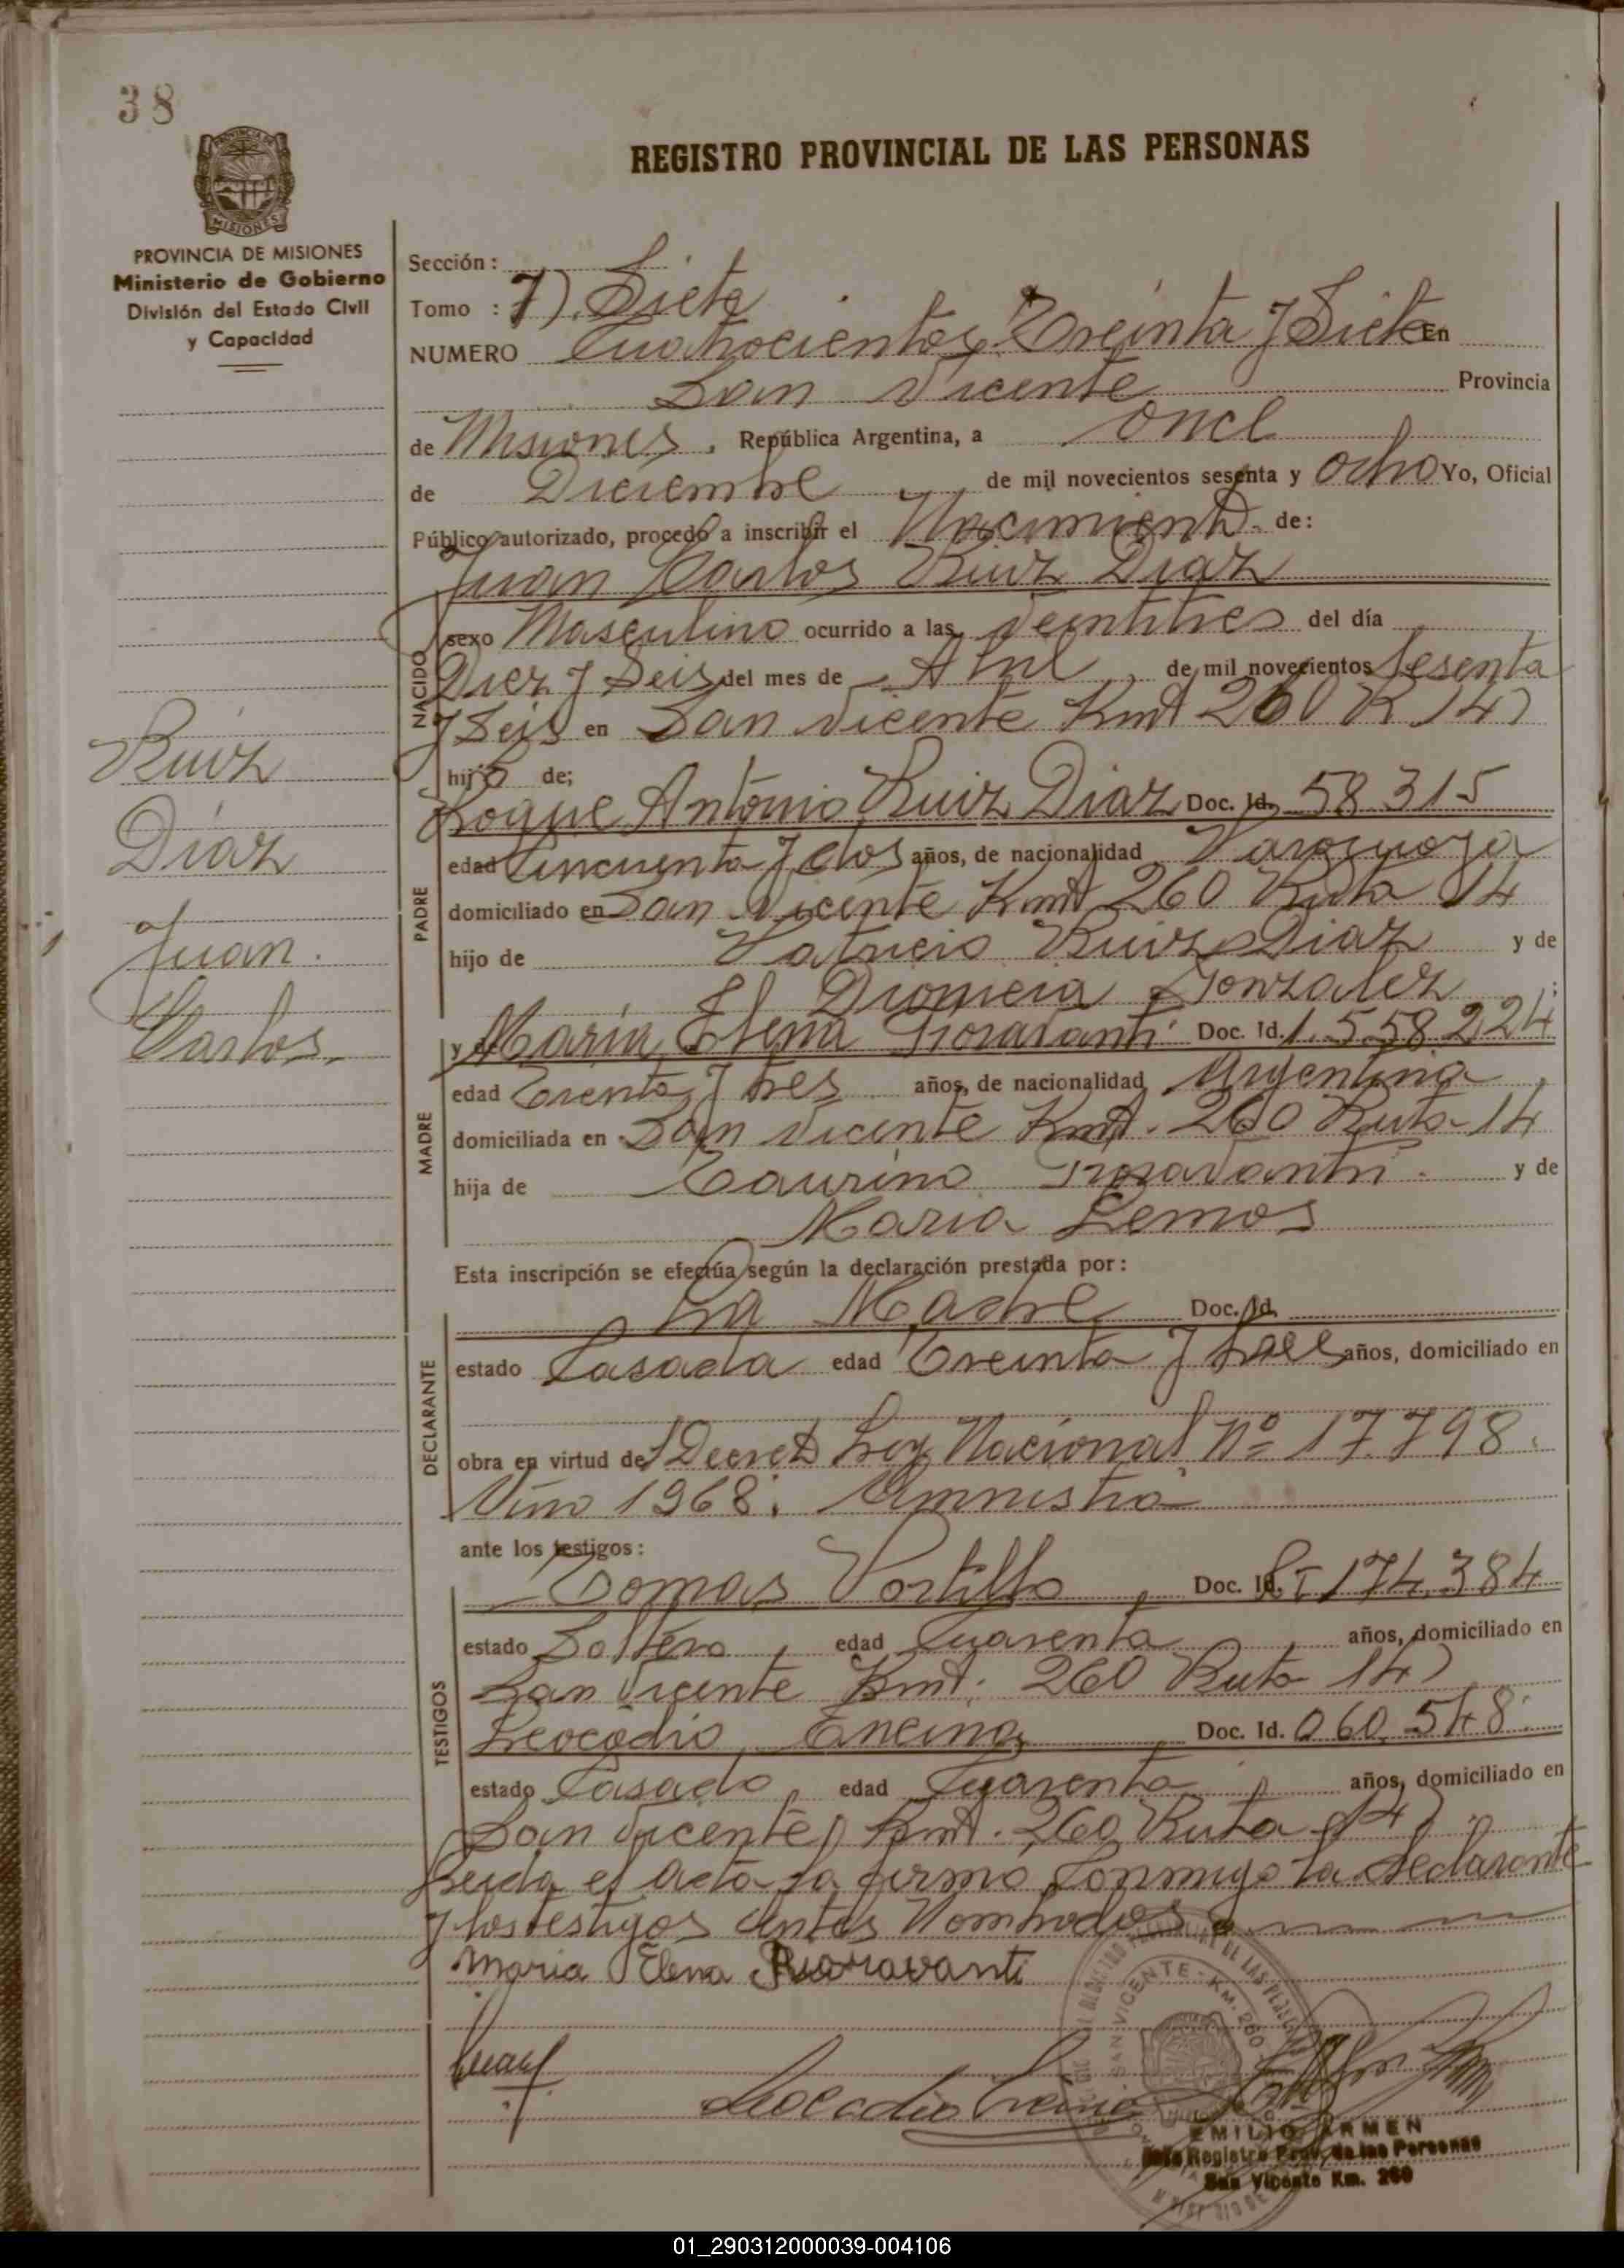 38
REGISTRO PROVINCIAL DE LAS PERSONAS
PROVINCIA DE MISIONES
Ministerio de Gobierno
División del Estado Civil
y Capacidad
Sección:
Tomo : 7). Siete
NUMERO Cuatrocientos Treinta y Siete En
San Vicente Provincia
de Misiones, República Argentina, a once
de Diciembre de mil novecientos sesenta y ocho Yo, Oficial
Público autorizado, procedo a inscribir el Nacimiento de:
Juan Carlos Ruiz Diaz
NACIDO
sexo Masculino ocurrido a las veintitres del día
Diez y Seis del mes de Abril, de mil novecientos Sesenta
y Seis en San Vicente Kmt 260 R 14)
hijo de;
Ruiz
Diaz
Juan.
Carlos.
PADRE
Roque Antonio Ruiz Diaz Doc. Id. 58315
edad Cincuenta y dos años, de nacionalidad Paraguaya
domiciliado en San Vicente Kmt 260 Ruta 14
hijo de Patricio Ruiz Diaz y de
Gonzalez ;
MADRE
y de Maria Elena Fioravanti Doc. Id. 1.558224
edad Treinta y tres años, de nacionalidad Argentina
domiciliada en San Vicente Kmt. 260 Ruta 14
hija de Taurino Fioravanti y de
Maria Lemos
Esta inscripción se efectúa según la declaración prestada por:
DECLARANTE
La Madre Doc. Id.
estado Casada edad Treinta y tres años, domiciliado en
obra en virtud del Decreto Ley Nacional Nº 17.798.
Año 1968. Amnistia
ante los testigos:
TESTIGOS
Tomas Portillo, Doc. Id. 8-174.384
estado Soltero, edad Cuarenta años, domiciliado en
San Vicente Kmt. 260 Ruta 14)
Leocadio Encina Doc. Id. 060.548.
estado Casado, edad Cuarenta años, domiciliado en
San Vicente, Kmt. 260 Ruta 14).
Leida el Acta la firma Conmigo la declarante
y los testigos Antes Nombrados
Maria Elena Fioravanti
Leocadio Encina
SAN VICENTE - KM. 260
EMILIO ARMEN
Jefe Registro Prov. de las Personas
San Vicente Km. 260
01_290312000039-004106